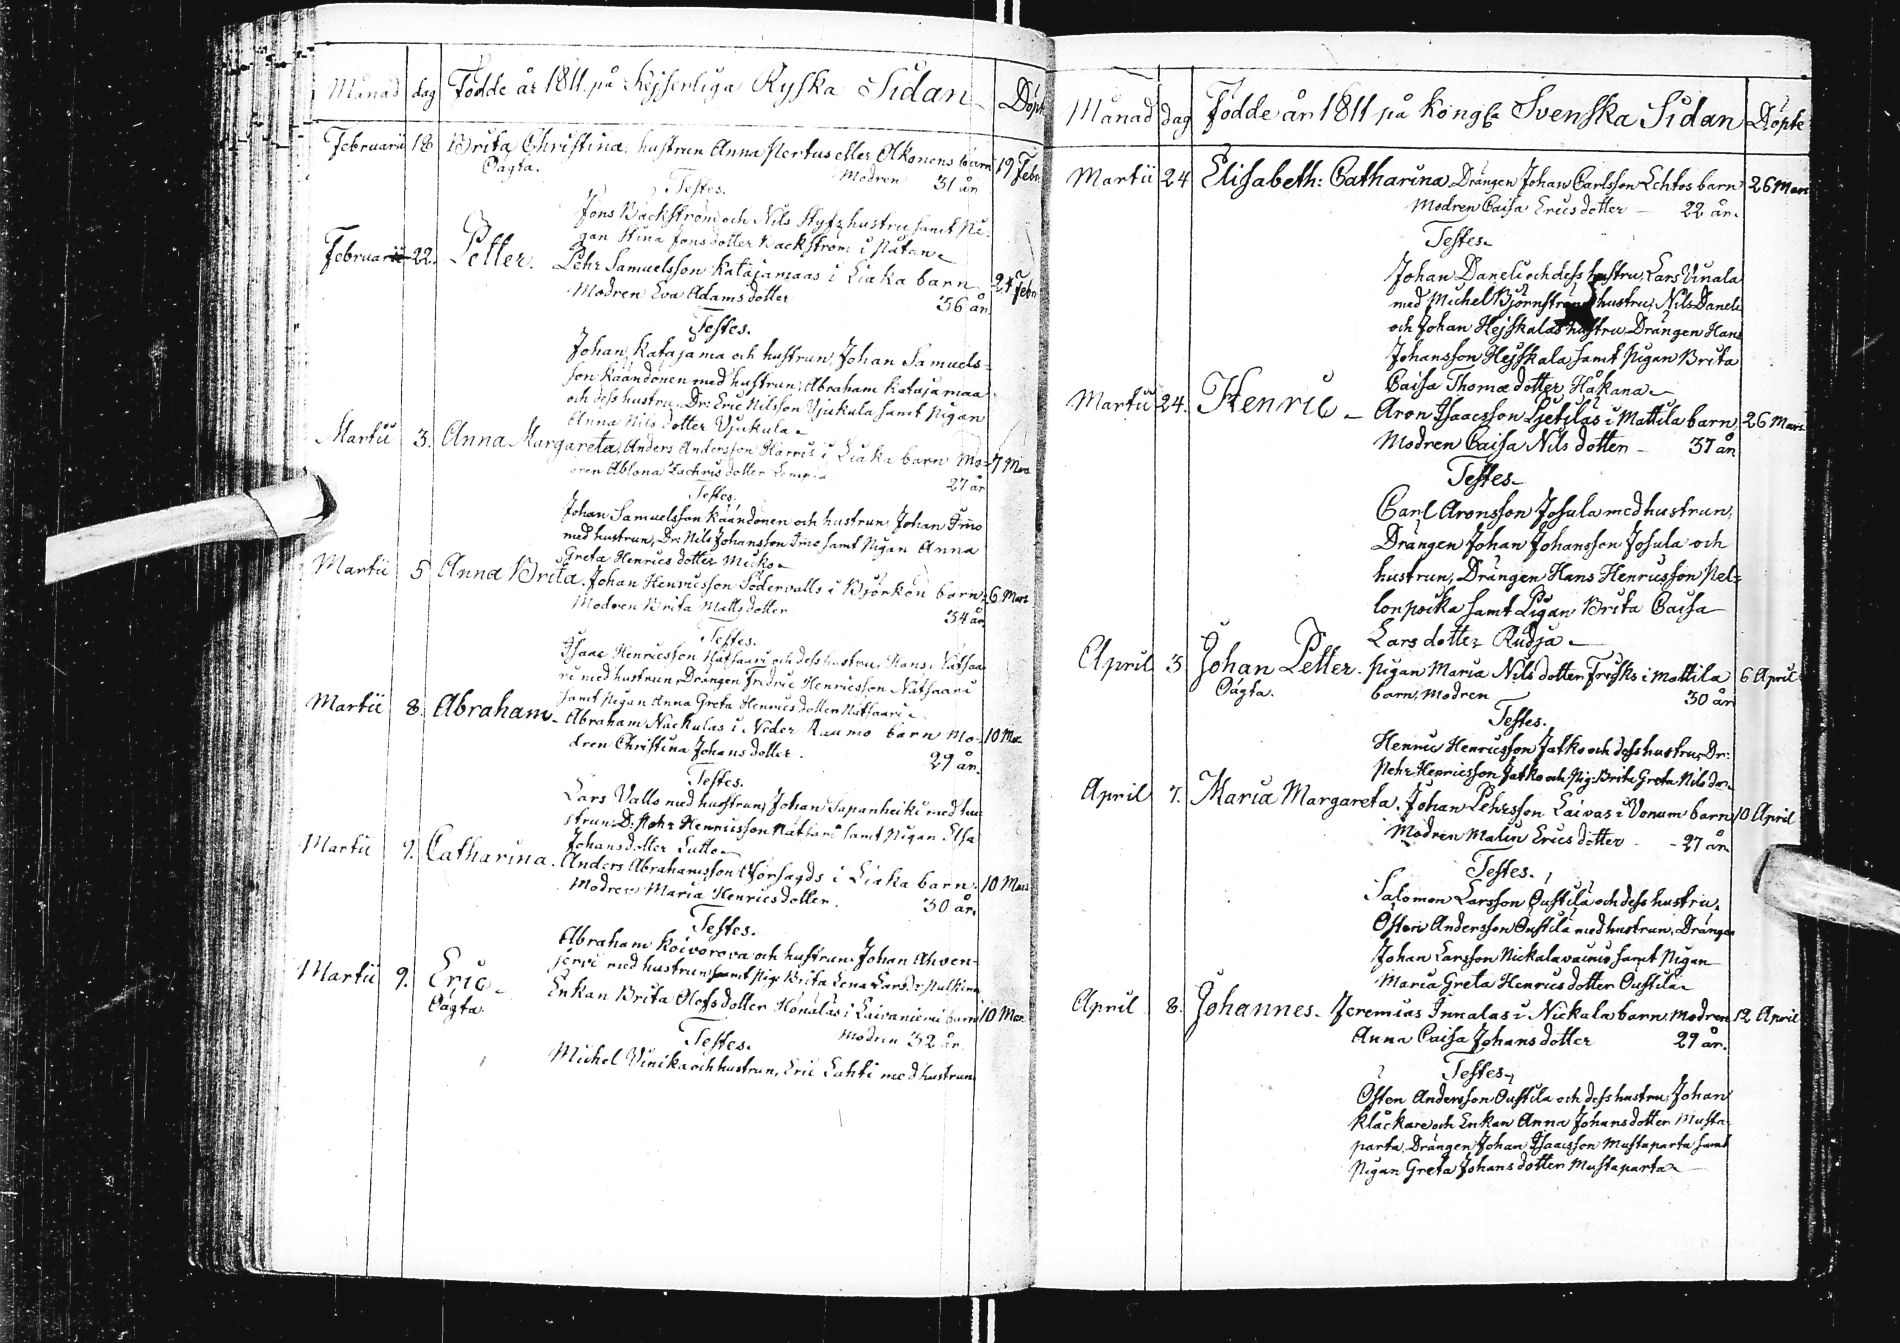 Månad dag Födde år 1811 på Kejserliga Ryska Sidan Döpt
Februarii 18 Brita Christina, hustrun Anna Pertus eller Alkonens barn 19 Febr
Oägta. Modren 31 år
Testes.
Jöns Bäckström och Nils Styfz hustru samt Pi-
gan Stina Jonsdotter Bäckström i Näran
Februarii 22. Petter. Pehr Samuelsson Katajamaas i Liaka barn 24 Febr
Modren Eva Adams dotter 36 år.
Testes.
Johan Katajama och hustrun, Johan Samuels-
son Käändönen med hustrun, Abraham Katajamaa
och dess hustru, Dr: Eric Nilsson Ujukula samt Pigan
Anna Nils dotter Ujukula
Martii 3. Anna Margareta, Anders Andersson Harris i Liaka barn Mo- 7 Mar
dren Ablona Zachris dotter 27 år
Testes.
Johan Samuelsson Käändönen och hustrun, Johan Imo
med hustrun, Dr: Nils Johansson Imo samt Pigan Anna
Greta Henrics dotter Micko
Martii 5 Anna Brita. Johan Henricsson Södervalls i Björkön barn 6 Mars
Modren Brita Matts dotter 34 år.
Testes.
Isaac Henricsson Nätsaari och dess hustru, Hans Nätsaa-
ri med hustrun, Drängen Fredric Henricsson Nätsaari
samt Pigan Anna Greta Henrics dotter Nätsaari
Martii 8. Abraham. Abraham Nackulas i Neder Raumo barn Mo- 10 Mar
dren Christina Johans dotter. 29 år.
Testes.
Lars Vallo med hustrun, Johan Lapanheiki med hu-
strun, D: Pehr Henricsson Nätsari samt Pigan Elsa
Johansdotter Lutto
Martii 9. Catharina. Anders Abrahamsson Försagds i Liaka barn 10 Mars
Modren Maria Henrics dotter. 30 år.
Testes.
Abraham Koivorova och hustrun, Johan Ahven-
jervi med hustrun, samt Pig. Brita Lena Larsdr Pulkina
Martii 9. Eric Enkan Brita Olofs dotter Honalas i Laivaniemi barn 10 Mar.
Oägta Modren 32 år.
Testes.
Michel Vinika och hustrun, Eric Lahti med hustrun.
Månad dag Födde år 1811 på Kongla Svenska Sidan Döpte
Martii 24 Elisabeth Catharina Drängen Johan Carlsson Lehtos barn 26 Mars
Modren Caisa Erics dotter 22 år.
Testes
Johan Daneli och dess hustru, Lars Vinala
med Michel Björnströms hustru, Nils Daneli
och Johan Hejskalas hustru Drängen Hans
Johansson Hejskala samt Pigan Brita
Caisa Thomæ dotter Håkana
Martii 24. Henric Aron Isaacsson Ljetiläs i Mattila barn 26 Mars
Modren Caisa Nils dotter 37 år
Testes
Carl Aronsson Josula med hustrun,
Drängen Johan Johansson Josula och
hustrun, Drängen Hans Henricsson Pel-
lonpoika samt Pigan Brita Caisa
Lars dotter Rudja
April 3 Johan Petter. Pigan Maria Nils dotter Frisks i Mattila 6 April
Oägta. barn, Modren 30 år
Testes.
Henric Henricsson Jatko och dess hustru, Dr:
Pehr Henricsson Jatko och Pig: Brita Greta Nils dr
April 7. Maria Margareta. Johan Pehrsson Laivas i Vonum barn 10 April
Modren Malin Erics dotter 27 år.
Testes.
Salomon Larsson Oustila och dess hustru,
Östen Andersson Oustila med hustrun, Drängen
Johan Larsson Nickalavainio samt Pigan
Maria Greta Henrics dotter Oustila
April 8. Johannes. Jeremias Innalas i Nickala barn, Modren 12 April
Anna Caisa Johans dotter 29 år.
Testes
Östen Andersson Oustila och dess hustru, Johan
Klåckare och Enkan Anna Johans dotter Musta-
parta, Drängen Johan Isaacsson Mustaparta samt
Pigan Greta Johans dotter Mustaparta